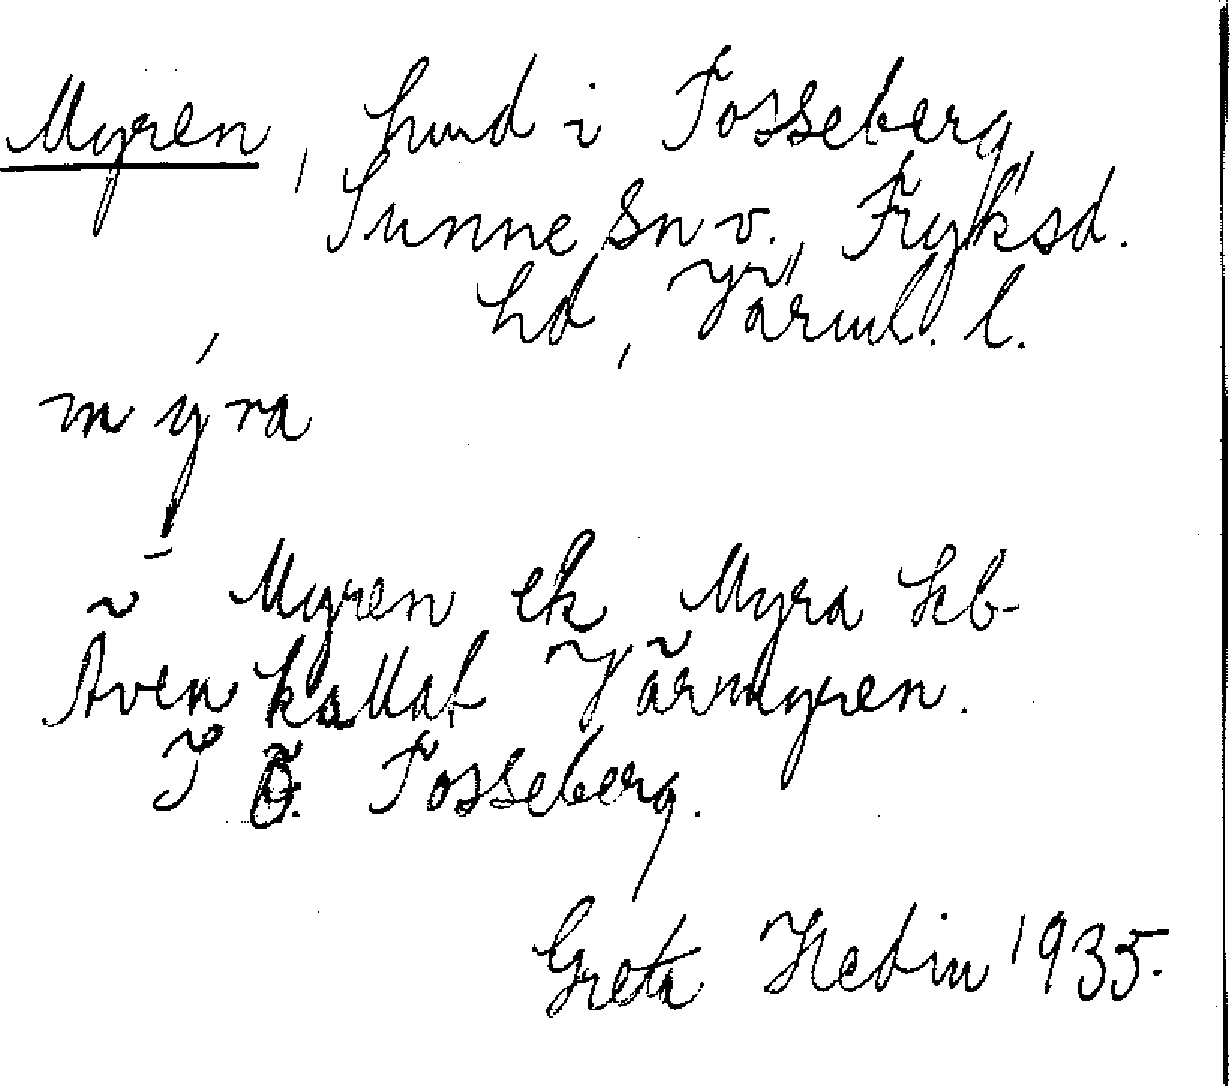 Myren, hmd i Tosseberg,
Sunne sn v., Fryksd.
hd, Värml. l.
mýra
~ Myren ek Myra kb
Även kallat Värmyren.
I Ö. Tosseberg.
Greta Hedin 1935.